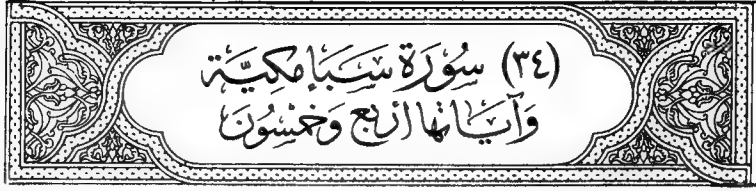 (٣٤) سُورَة سَبَإ مكِيَّة
وَآيَاتها أربَع وَخَمْسُونَ